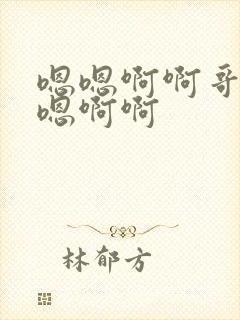 嗯嗯啊啊哥
嗯啊啊
林郁方